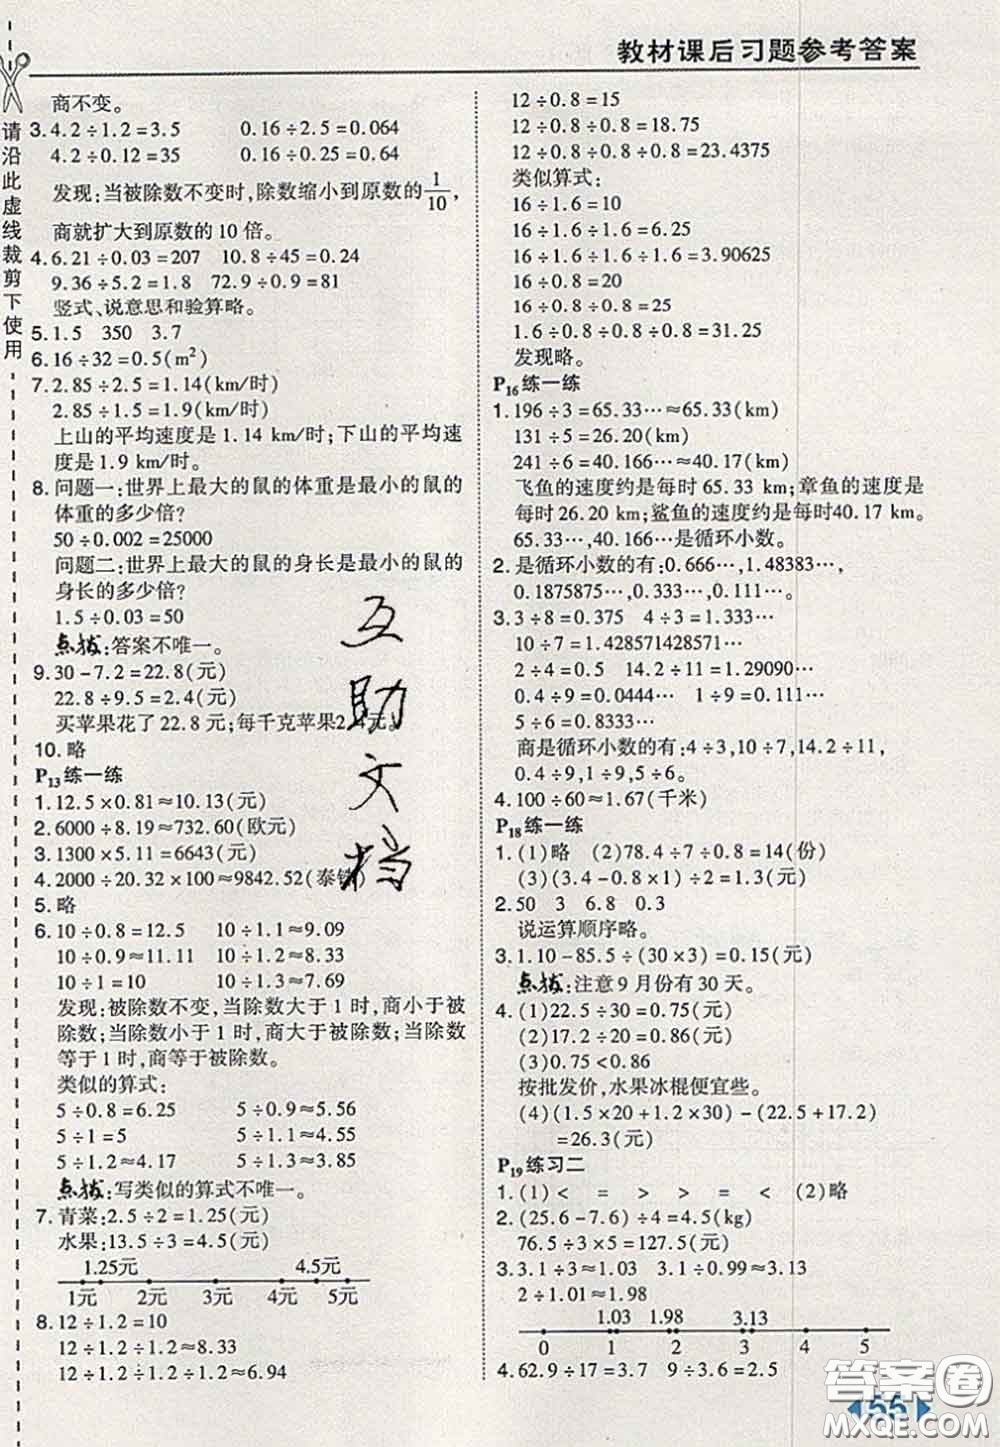 教材课后习题参考答案
请沿此虚线裁剪下使用
商不变。
3. 4.2÷1.2=3.5 0.16÷2.5=0.064
4.2÷0.12=35 0.16÷0.25=0.64
发现:当被除数不变时,除数缩小到原数的1/10,
商就扩大到原数的10倍。
4. 6.21÷0.03=207 10.8÷45=0.24
9.36÷5.2=1.8 72.9÷0.9=81
竖式、说意思和验算略。
5. 1.5 350 3.7
6. 16÷32=0.5(m²)
7. 2.85÷2.5=1.14(km/时)
2.85÷1.5=1.9(km/时)
上山的平均速度是1.14 km/时;下山的平均速
度是1.9 km/时。
8. 问题一:世界上最大的鼠的体重是最小的鼠的
体重的多少倍?
50÷0.002=25000
问题二:世界上最大的鼠的身长是最小的鼠的
身长的多少倍?
1.5÷0.03=50
点拨:答案不唯一。
9. 30-7.2=22.8(元)
22.8÷9.5=2.4(元)
买苹果花了22.8元;每千克苹果2.4元。
10. 略
P13练一练
1. 12.5×0.81≈10.13(元)
2. 6000÷8.19≈732.60(欧元)
3. 1300×5.11=6643(元)
4. 2000÷20.32×100≈9842.52(泰铢)
5. 略
6. 10÷0.8=12.5 10÷1.1≈9.09
10÷0.9≈11.11 10÷1.2≈8.33
10÷1=10 10÷1.3≈7.69
发现:被除数不变,当除数大于1时,商小于被
除数;当除数小于1时,商大于被除数;当除数
等于1时,商等于被除数。
类似的算式:
5÷0.8=6.25 5÷0.9≈5.56
5÷1=5 5÷1.1≈4.55
5÷1.2≈4.17 5÷1.3≈3.85
点拨:写类似的算式不唯一。
7. 青菜:2.5÷2=1.25(元)
水果:13.5÷3=4.5(元)
1.25元 4.5元
1元 2元 3元 4元 5元
8. 12÷1.2=10
12÷1.2÷1.2≈8.33
12÷1.2÷1.2÷1.2≈6.94
12÷0.8=15
12÷0.8÷0.8=18.75
12÷0.8÷0.8÷0.8=23.4375
类似算式:
16÷1.6=10
16÷1.6÷1.6=6.25
16÷1.6÷1.6÷1.6=3.90625
16÷0.8=20
16÷0.8÷0.8=25
1.6÷0.8÷0.8÷0.8=31.25
发现略。
P16练一练
1. 196÷3=65.33…≈65.33(km)
131÷5=26.20(km)
241÷6=40.166…≈40.17(km)
飞鱼的速度约是每时65.33 km;章鱼的速度是
每时26.20 km;鲨鱼的速度约是每时40.17 km。
65.33…,40.166…是循环小数。
2. 是循环小数的有:0.666…,1.48383…,
0.1875875…,0.333…,0.111…。
3. 3÷8=0.375 4÷3=1.333…
10÷7=1.428571428571…
2÷4=0.5 14.2÷11=1.29090…
0.4÷9=0.0444… 1÷9=0.111…
5÷6=0.8333…
商是循环小数的有:4÷3,10÷7,14.2÷11,
0.4÷9,1÷9,5÷6。
4. 100÷60≈1.67(千米)
P18练一练
1. (1)略 (2)78.4÷7÷0.8=14(份)
(3)(3.4-0.8×1)÷2=1.3(元)
2. 50 3 6.8 0.3
说运算顺序略。
3. 1.10-85.5÷(30×3)=0.15(元)
点拨:注意9月份有30天。
4. (1)22.5÷30=0.75(元)
(2)17.2÷20=0.86(元)
(3)0.75<0.86
按批发价,水果冰棍便宜些。
(4)(1.5×20+1.2×30)-(22.5+17.2)
=26.3(元)
P19练习二
1. (1)< = > > = < (2)略
2. (25.6-7.6)÷4=4.5(kg)
76.5÷3×5=127.5(元)
3. 3.1÷3≈1.03 3.1÷0.99≈3.13
2÷1.01≈1.98
1.03 1.98 3.13
0 1 2 3 4 5
4. 62.9÷17=3.7 9÷3.6=2.5
55
互
助
文
档
答案圈
MXQE.COM